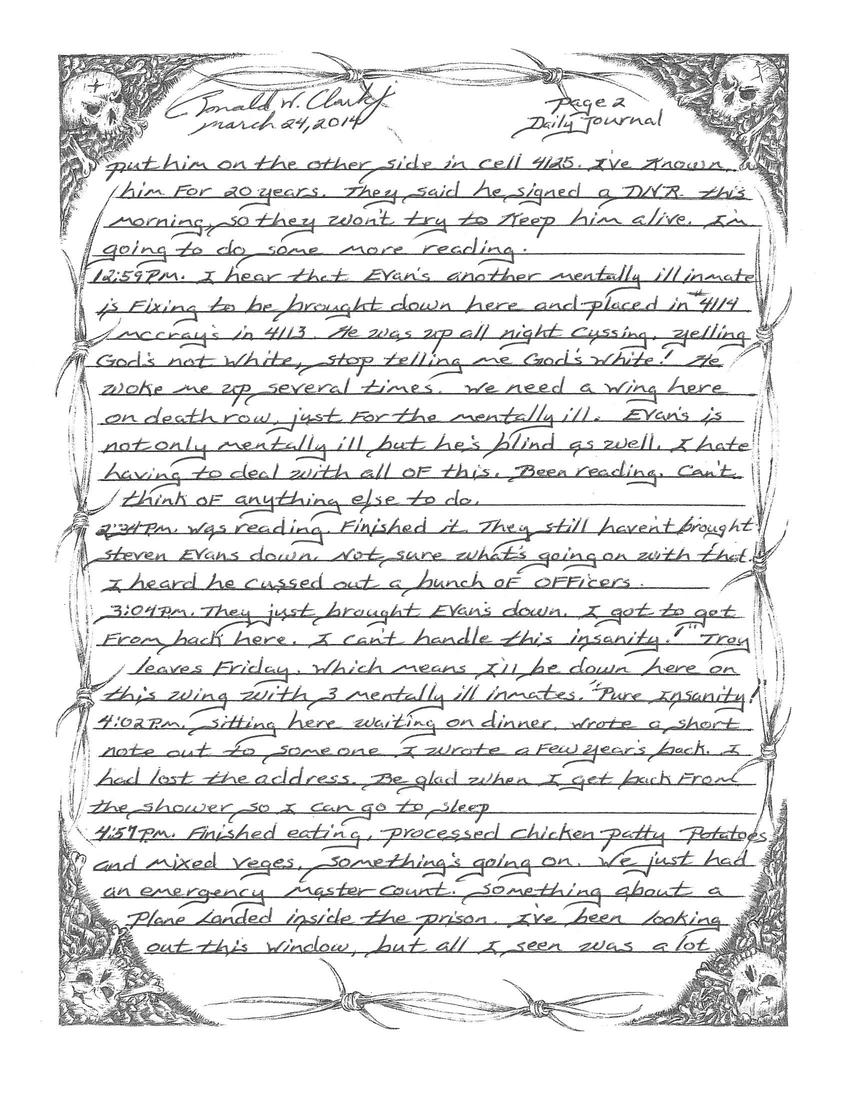 Ronald W. Clark Jr
Page 2
March 24, 2014
Daily Journal
put him on the other side in cell 4125. I've Known
him For 20 years. They said he signed a DNR this
morning, so they won't try to Keep him alive. I'm
going to do some more reading.
12:59 PM. I hear that Evan's another mentally ill inmate
is Fixing to be brought down here and placed in #4114
mccray's in 4113. He was up all night cussing, yelling
God's not White, stop telling me God's White! He
woke me up several times. We need a wing here
on death row, just For the mentally ill. Evan's is
not only mentally ill but he's blind as well. I hate
having to deal with all OF this. Been reading. Can't
think OF anything else to do.
2:34 PM. was reading. Finished it. They still haven't brought
steven Evans down. Not sure what's going on with that.
I heard he cussed out a bunch OF OFFicers.
3:04 PM. They just brought Evan's down. I got to get
From back here. I can't handle this insanity!" Troy
leaves Friday. Which means I'll be down here on
this wing with 3 mentally ill inmates. "Pure Insanity!
4:02 P.M. Sitting here waiting on dinner. Wrote a short
note out to someone I wrote a Few year's back. I
had lost the address. Be glad when I get back From
the shower so I can go to sleep
4:57 PM. Finished eating, processed chicken patty Potatoes
and mixed veges. Something's going on. We just had
an emergency Master Count. Something about a
Plane Landed inside the prison. I've been looking
out this window, but all I seen was a lot